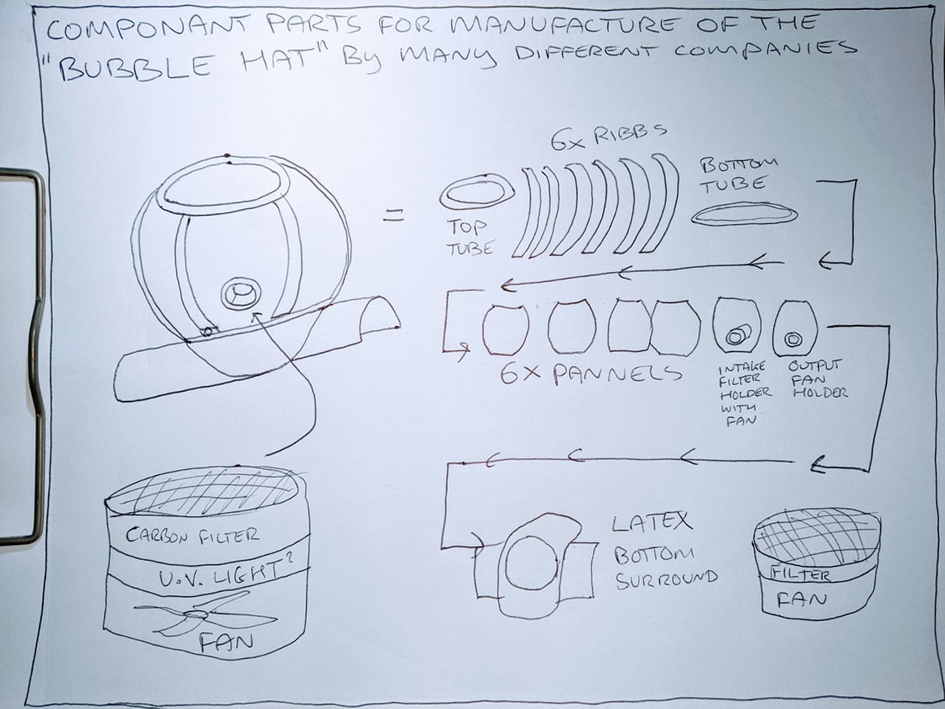 COMPONANT PARTS FOR MANUFACTURE OF THE
"BUBBLE HAT" By MANY DIFFERENT COMPANIES
6x RIBBS
TOP
TUBE
BOTTOM
TUBE
6X PANNELS
INTAKE
FILTER
HOLDER
WITH
FAN
OUTPUT
FAN
HOLDER
CARBON FILTER
U.V. LIGHT?
FAN
LATEX
BOTTOM
SURROUND
FILTER
FAN